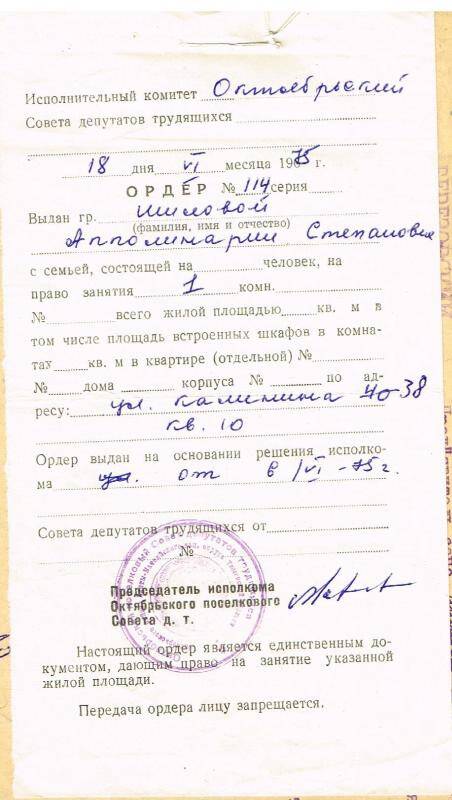 Исполнительный комитет Октябрьский
Совета депутатов трудящихся
18 дня VI месяца 1975 г.
ОРДЕР № 114 серия
Выдан гр. Шиловой
(фамилия, имя и отчество)
Апполинарии Степановне
с семьей, состоящей на человек, на
право занятия 1 комн.
№ всего жилой площадью кв. м в
том числе площадь встроенных шкафов в комна-
тах кв. м в квартире (отдельной) №
№ дома корпуса № по ад-
ресу: ул. Калинина 40-38
кв. 10
Ордер выдан на основании решения исполко-
ма от 6/VI-75 г.
Совета депутатов трудящихся от
№
Председатель исполкома
Октябрьского поселкового
Совета д. т.
Настоящий ордер является единственным до-
кументом, дающим право на занятие указанной
жилой площади.
Передача ордера лицу запрещается.